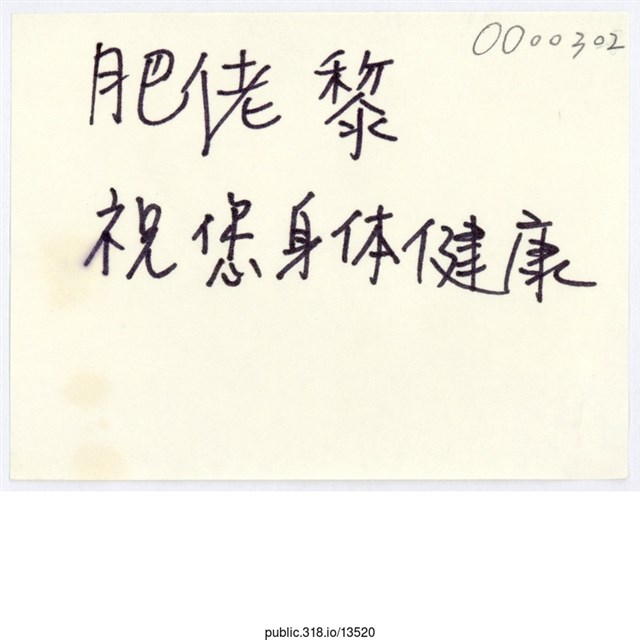 0000302
肥佬黎
祝您身体健康
public.318.io/13520